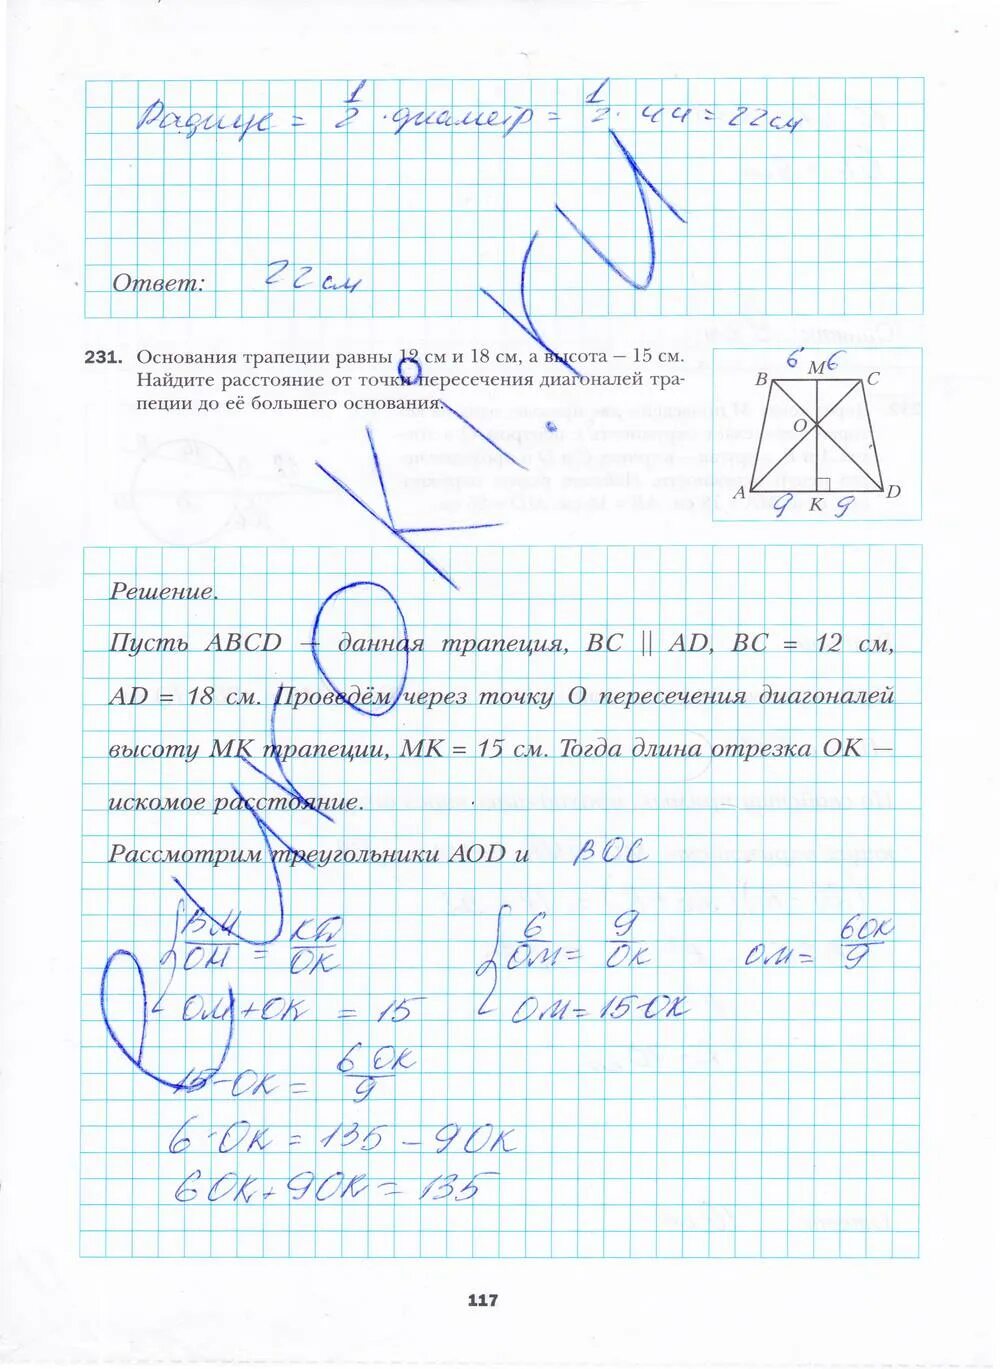 Радиус = 1/2 · диаметр = 1/2 · 44 = 22 см
Ответ: 22 см
231. Основания трапеции равны 12 см и 18 см, а высота – 15 см.
Найдите расстояние от точки пересечения диагоналей тра-
пеции до её большего основания.
6 М 6
B C
O
A D
9 K 9
Решение.
Пусть ABCD — данная трапеция, BC || AD, BC = 12 см,
AD = 18 см. Проведём через точку O пересечения диагоналей
высоту MK трапеции, MK = 15 см. Тогда длина отрезка OK —
искомое расстояние.
Рассмотрим треугольники AOD и BOC
{ BM/OM = KD/OK { 6/OM = 9/OK OM = 6OK/9
OM + OK = 15 OM = 15-OK
15-OK = 6 OK/9
6·OK = 135 – 9OK
6OK + 9OK = 135
117